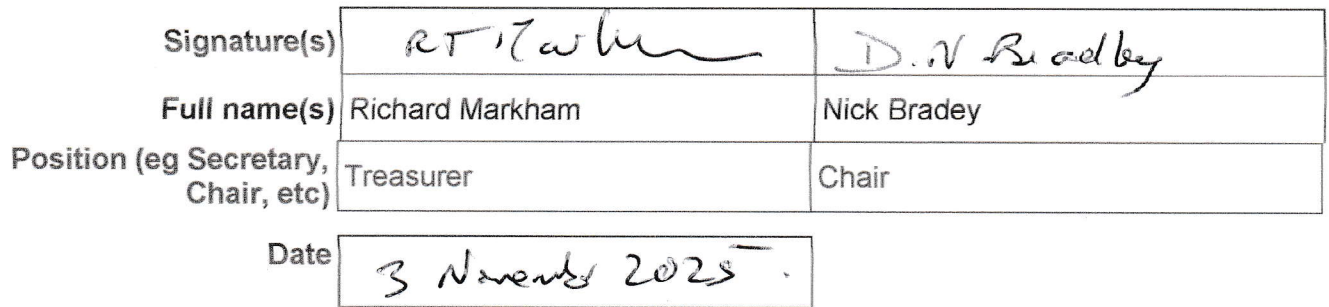 Signature(s) RT Markham D. N Bradley
Full name(s) Richard Markham Nick Bradey
Position (eg Secretary, Chair, etc) Treasurer Chair
Date 3 November 2025.